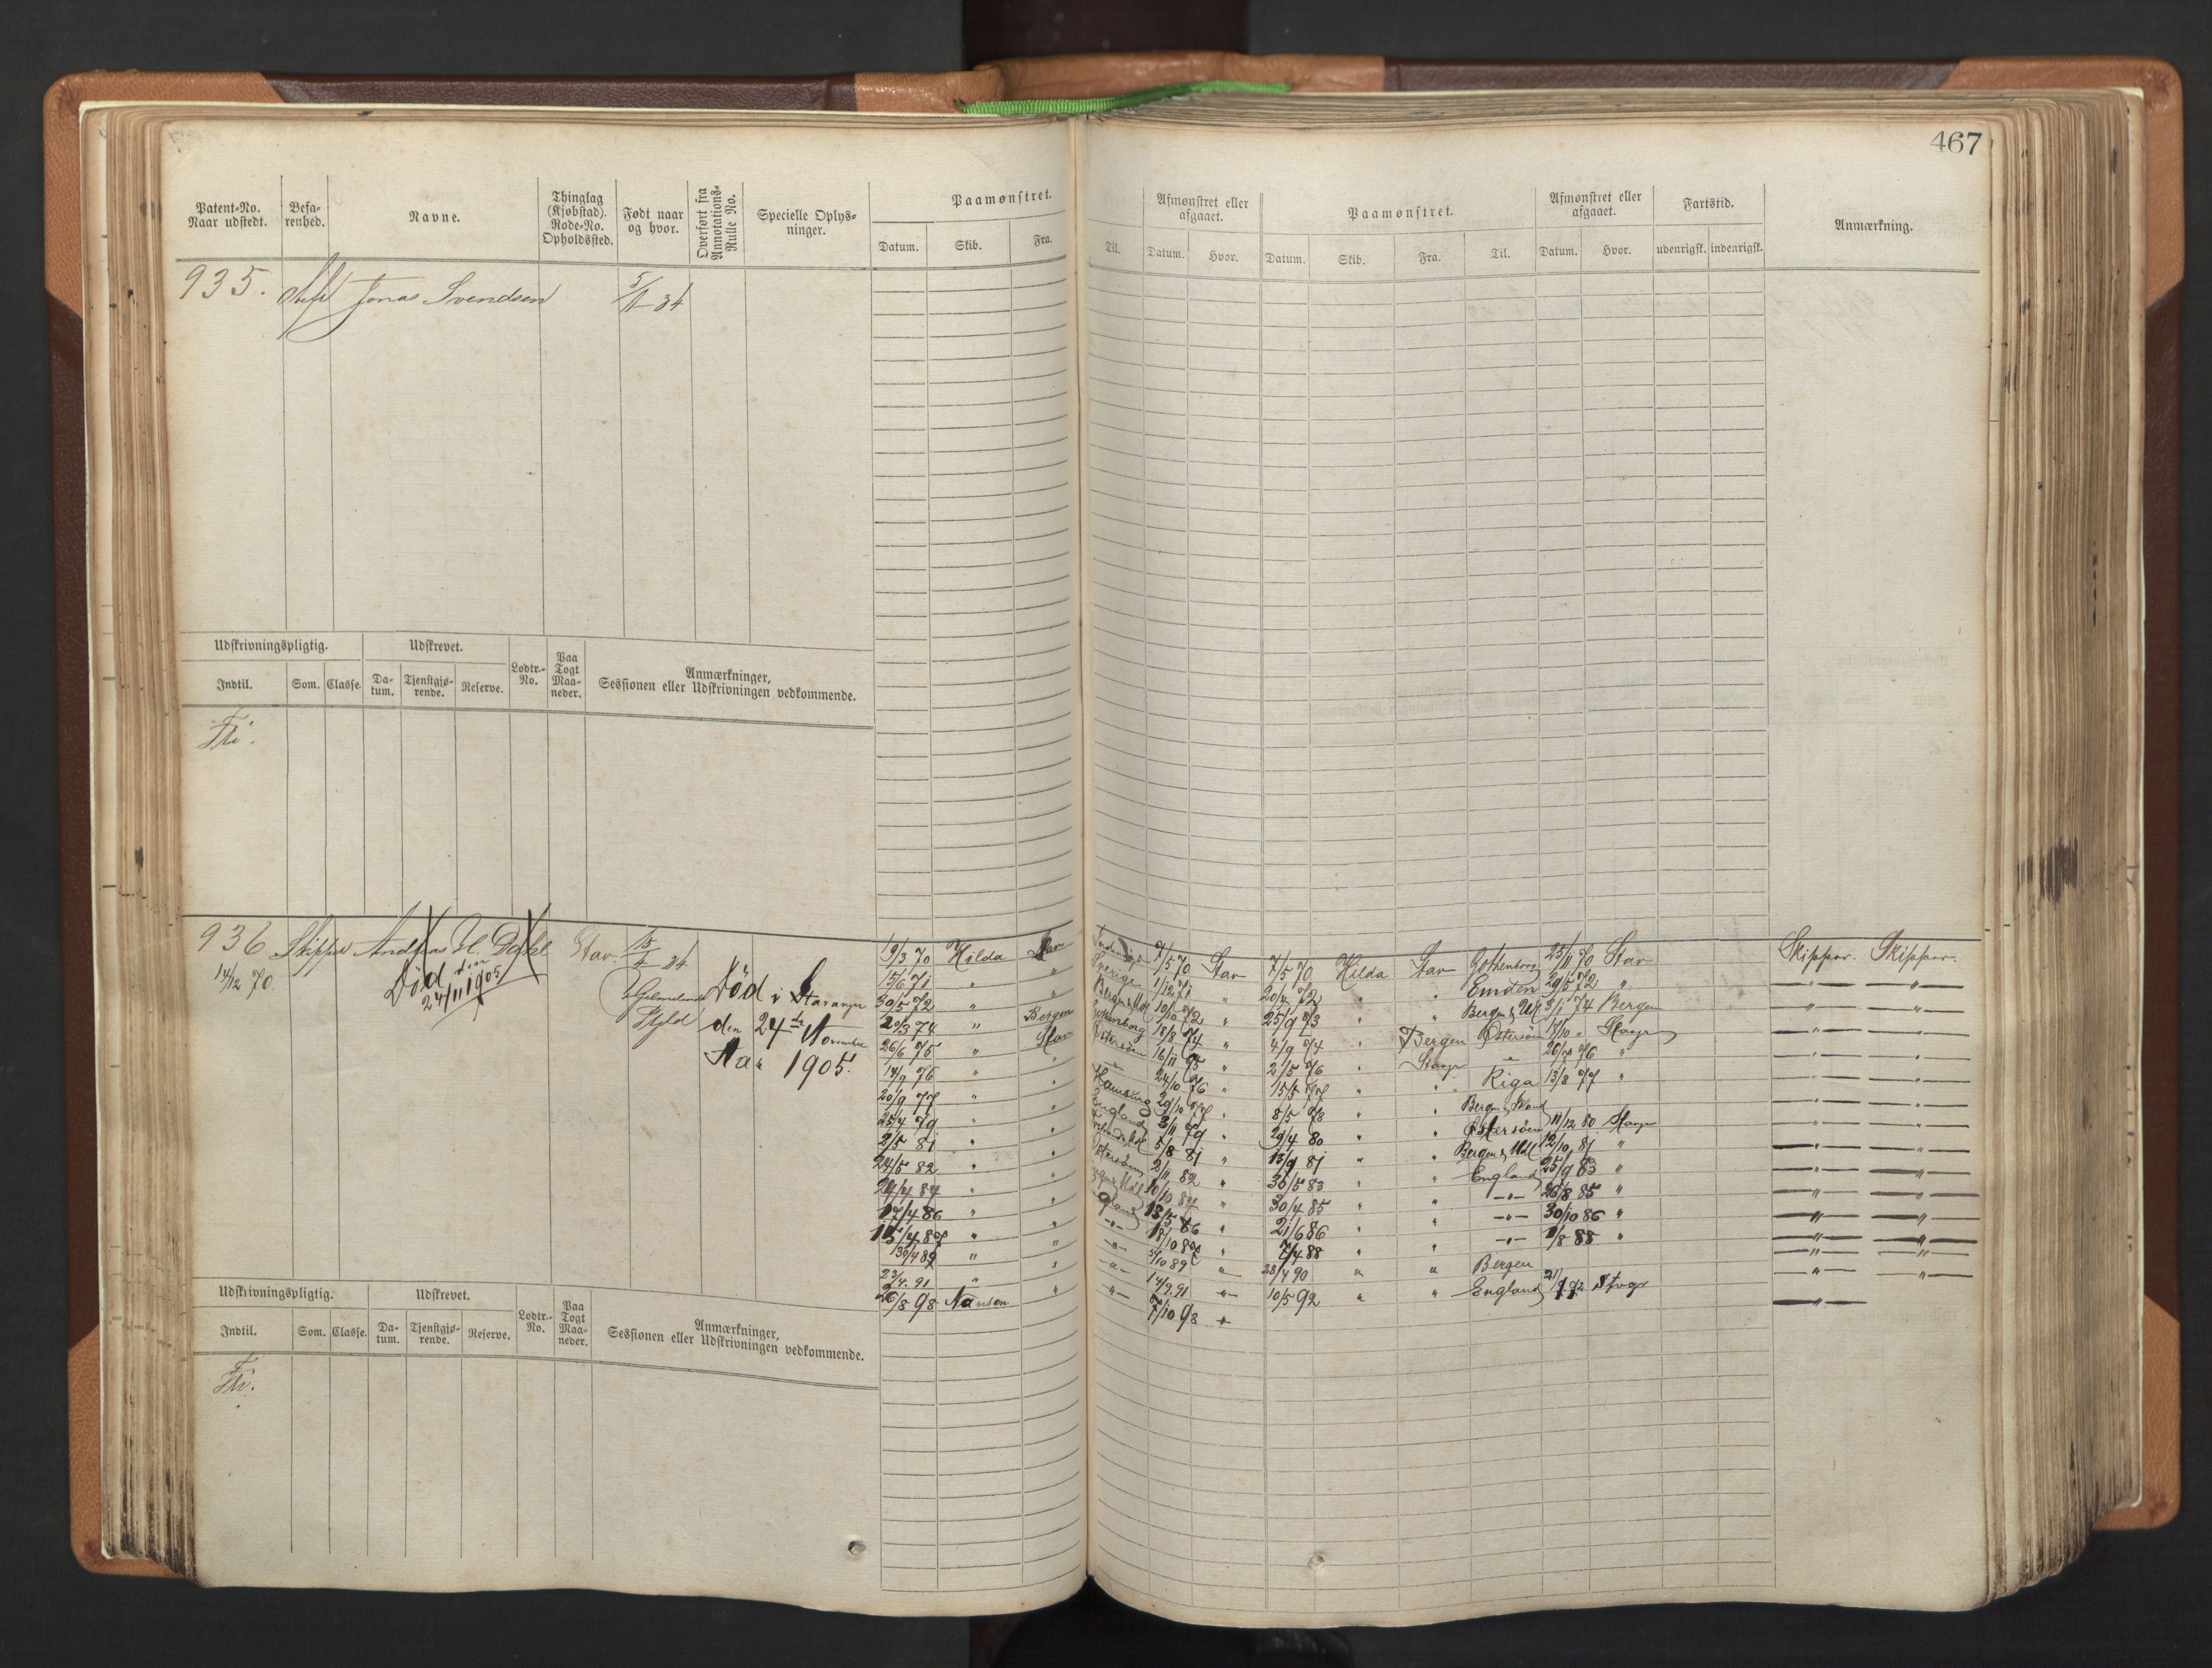 467
Patent=No. Naar udstedt.
Befa= renhed.
Navne.
Thinglag (Kjøbstad). Rode=No. Opholdssted.
Født naar og hvor.
Overført fra Annotations= Rulle No.
Specielle Oplys= ninger.
Paamønstret.
Datum. Skib. Fra.
Til.
Afmønstret eller afgaaet.
Datum. Hvor.
Paamønstret.
Datum. Skib. Fra. Til.
Afmønstret eller afgaaet.
Datum. Hvor.
Fartstid.
udenrigsk. indenrigsk.
Anmærkning.
935. Jonas Svendsen 34
Udskrivningspligtig. Udskrevet. Lodtr.= No. Paa Togt Maa= neder. Anmærkninger, Sessionen eller Udskrivningen vedkommende.
Indtil. Som. Classe. Da= tum. Tjenstgjø= rende. Reserve.
Fri.
936 Skipper Andreas H Dahl Stav.
14/12 70.
Død den 24/11 1905
Død i Stavanger
den 24de November
Aar 1905.
19/3 70 Hilda Stav 7/5 70 Stav 7/5 70 Hilda Stav Gothenborg 25/11 70 Stav Skipper. Skipper.
15/6 71 " " Sverige 1/12 71 " 20/4 72 " " Emden 29/5 72 " " "
30/5 72 " " Bergen & Udl 10/10 72 " 25/9 73 " " Bergen & Udl 3/1 74 Bergen " "
20/3 74 " Bergen 18/8 74 " 4/9 74 " Bergen Østersøen 15/10 " Stavgr " "
26/6 75 " Stav Østersøen 16/11 75 " 2/5 76 " Stavgr " 76 " " "
14/9 76 " " " 24/10 76 " 15/5 77 " " Riga 13/8 77 " " "
20/9 77 " " Hamburg 29/10 77 " 8/5 78 " " " "
25/4 79 " " England 3/11 79 " 29/4 80 " " Østersøen 11/12 80 Stavgr " "
2/5 81 " " 5/8 81 " 13/9 81 " " Bergen & Udl 12/10 81 " " "
24/5 82 " " Østersøen 2/11 82 " 30/5 83 " " England 25/9 83 " " "
84 " " 10/10 84 " 30/4 85 " " " 26/8 85 " " "
17/4 86 " " 86 " 21/6 86 " " " 30/10 86 " " "
15/4 87 " " " 18/10 87 " 7/4 88 " " " 1/8 88 " " "
30/4 89 " " " 5/10 89 " 28/4 90 " " Bergen " "
23/4 91 " " " 14/9 91 " 10/5 92 " " England Stvgr "
26/8 98 Nansen " 7/10 98 "
Udskrivningspligtig. Udskrevet. Lodtr.= No. Paa Togt Maa= neder. Anmærkninger, Sessionen eller Udskrivningen vedkommende.
Indtil. Som. Classe. Da= tum. Tjenstgjø= rende. Reserve.
Fri.